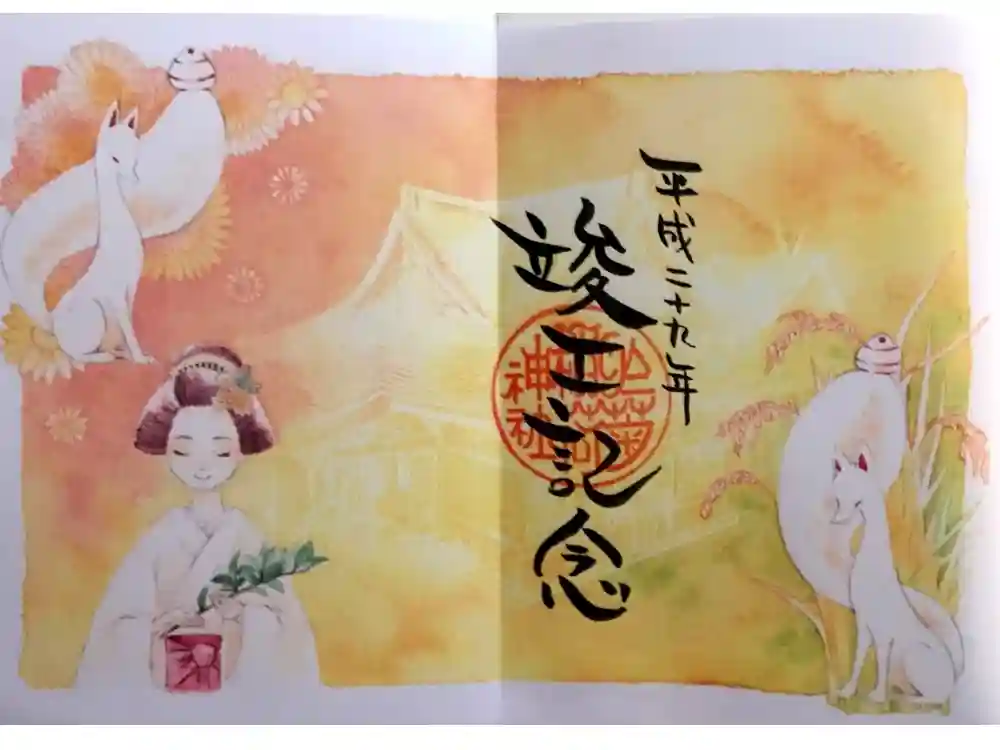 平成二十九年
竣工記念
神社